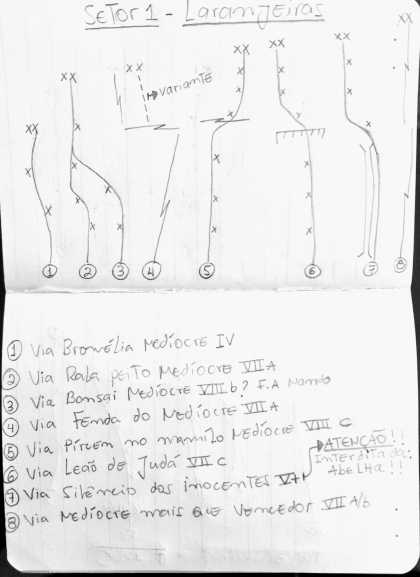 Setor 1 - Laranjeiras
XX
XX
XX
XX
XX
XX
XX
variante
1 2 3 4 5 6 7 8
1 Via Bromélia Medíocre IV
2 Via Rala peito Medíocre VII A
3 Via Bonsai Medíocre VIII b? F.A
4 Via Fenda do Medíocre VII A
5 Via Pircem no mamilo Medíocre VIII C
6 Via Leão de Judá VII C
7 Via Silêncio dos inocentes VI+
ATENÇÃO!!
Interditada:
Abelha!!
8 Via Medíocre mais que vencedor VII A/b